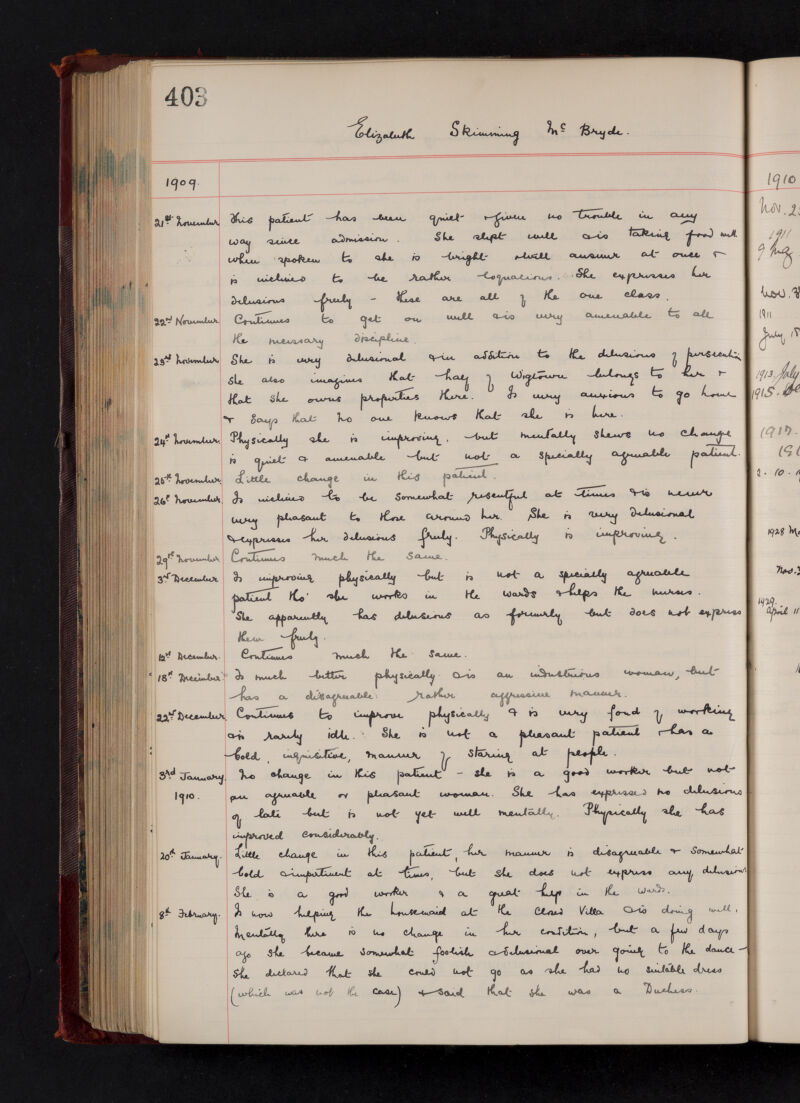 403
Elizabeth Skimming Mc Bryde.
1909.
21st November. This patient has been quiet & given no trouble in any
way since admission. She slept well & is taking food well
when spoken to she is bright & will answer at once &
is inclined to be rather loquacious. She expresses her
delusions freely - these are all of the one class.
22nd November Continues to get on well & is very amenable to all
the necessary discipline.
23rd November She is very delusional & in addition to the delusions of persecution
she also imagines that half of Wigtown belongs to her &
that she owns properties there. Is very anxious to go home
& says that no one knows that she is here.
24th November. Physically she is improving, but mentally shews no change
is quiet & amenable but not a specially agreeable patient.
25th November Little change in this patient.
26th November Is inclined to be somewhat resentful at times & is never
very pleasant to those around her. She is very delusional
& expresses her delusions freely. Physically is improving.
29th November Continues much the same.
3rd December Is improving physically but is not a specially agreeable
patient tho' she works in the wards & helps the nurses.
She apparently has delusions as formerly but does not express
them freely.
12th December. Continues much the same.
18th December Is much better physically & is an industrious woman, but
has a disagreeable rather aggressive manner.
22nd December Continues to improve physically & is very fond of working
& is rarely idle. She is not a pleasant patient & has a
bold, inquisitive, manner of staring at people.
3rd January. No change in this patient - she is a good worker but not
1910. an agreeable or pleasant woman. She has expressed no delusions
of late but is not yet well mentally. Physically she has
improved considerably.
20th January. Little change in this patient, her manner is disagreeable & somewhat
bold & impertinent at times, but she does not express any delusions
She is a good worker & a great help in the wards.
8th February. Is now helping the housemaid at the Closed Villa & is doing well.
Mentally there is no change in her condition, but a few days
ago she became somewhat foolish & delusional over going to the dance -
She declared that she could not go as she had no suitable dress
(which was not the case) & said that she was a Duchess.
1910
Nov. 2
1911
9 Aug
Nov. 3
1911
July 15
1913. July
1915.
1917.
191
2. 10.
1928
Nov.
1929.
April 11